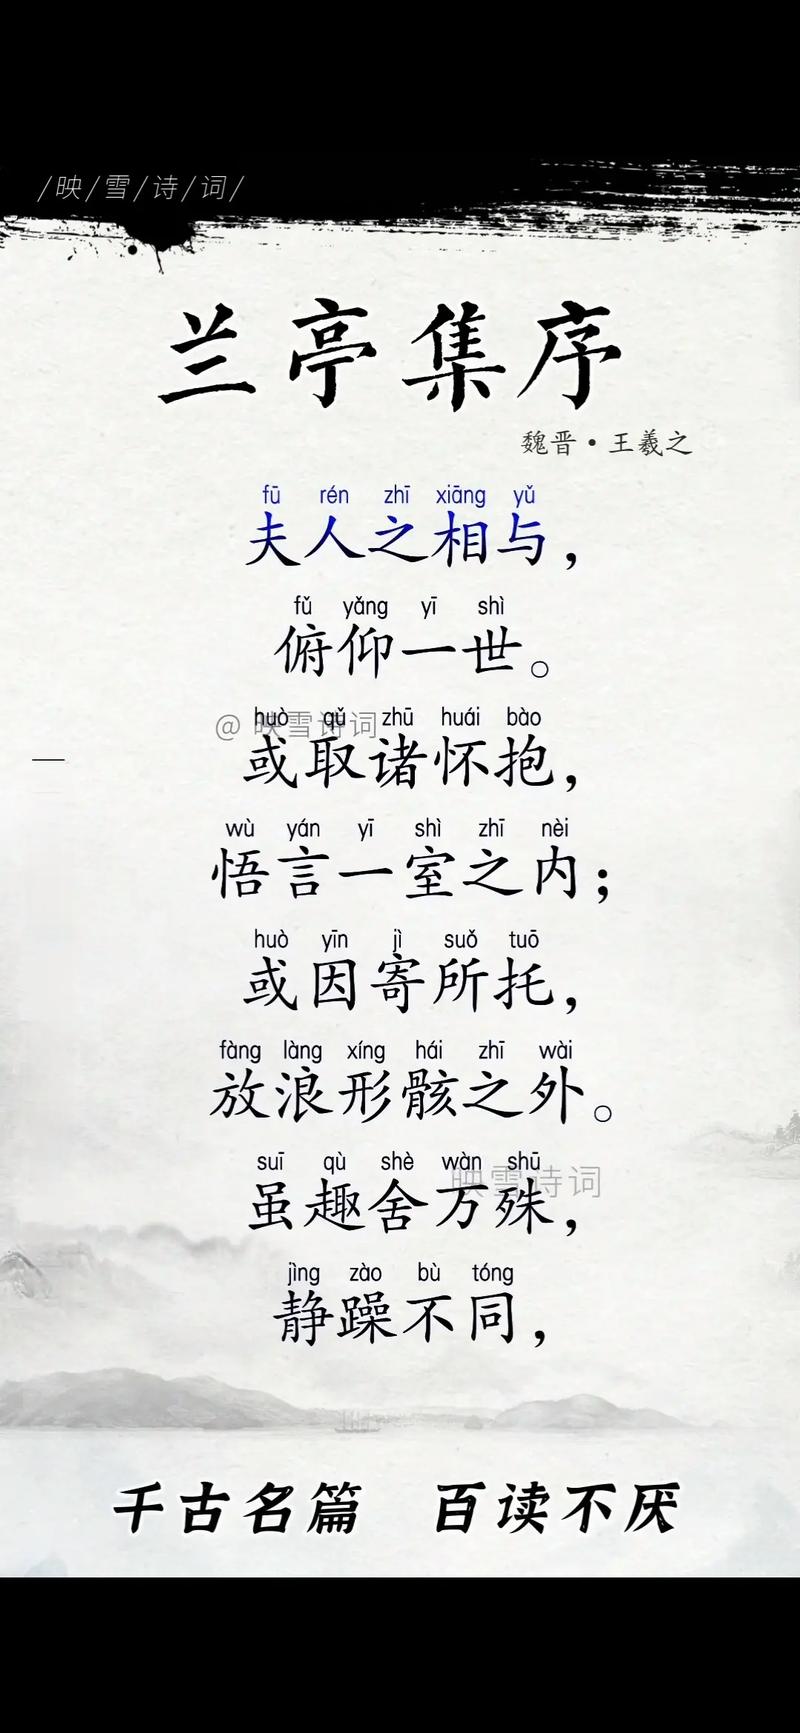 /映/雪/诗/词/
兰亭集序
魏晋·王羲之
fū rén zhī xiāng yǔ
夫人之相与，
fǔ yǎng yī shì
俯仰一世。
huò qǔ zhū huái bào
@映雪诗词
或取诸怀抱，
wù yán yī shì zhī nèi
悟言一室之内；
huò yīn jì suǒ tuō
或因寄所托，
fàng làng xíng hái zhī wài
放浪形骸之外。
suī qù shè wàn shū
映雪诗词
虽趣舍万殊，
jìng zào bù tóng
静躁不同，
千古名篇 百读不厌